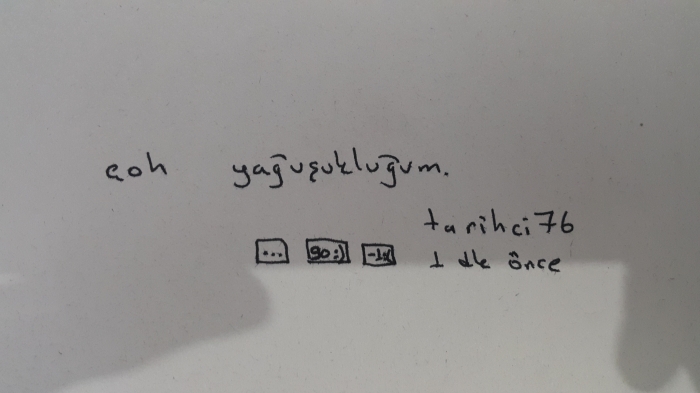 çoh yağuşukluğum.
tarihci76
... go :) -1 :( 1 dk önce